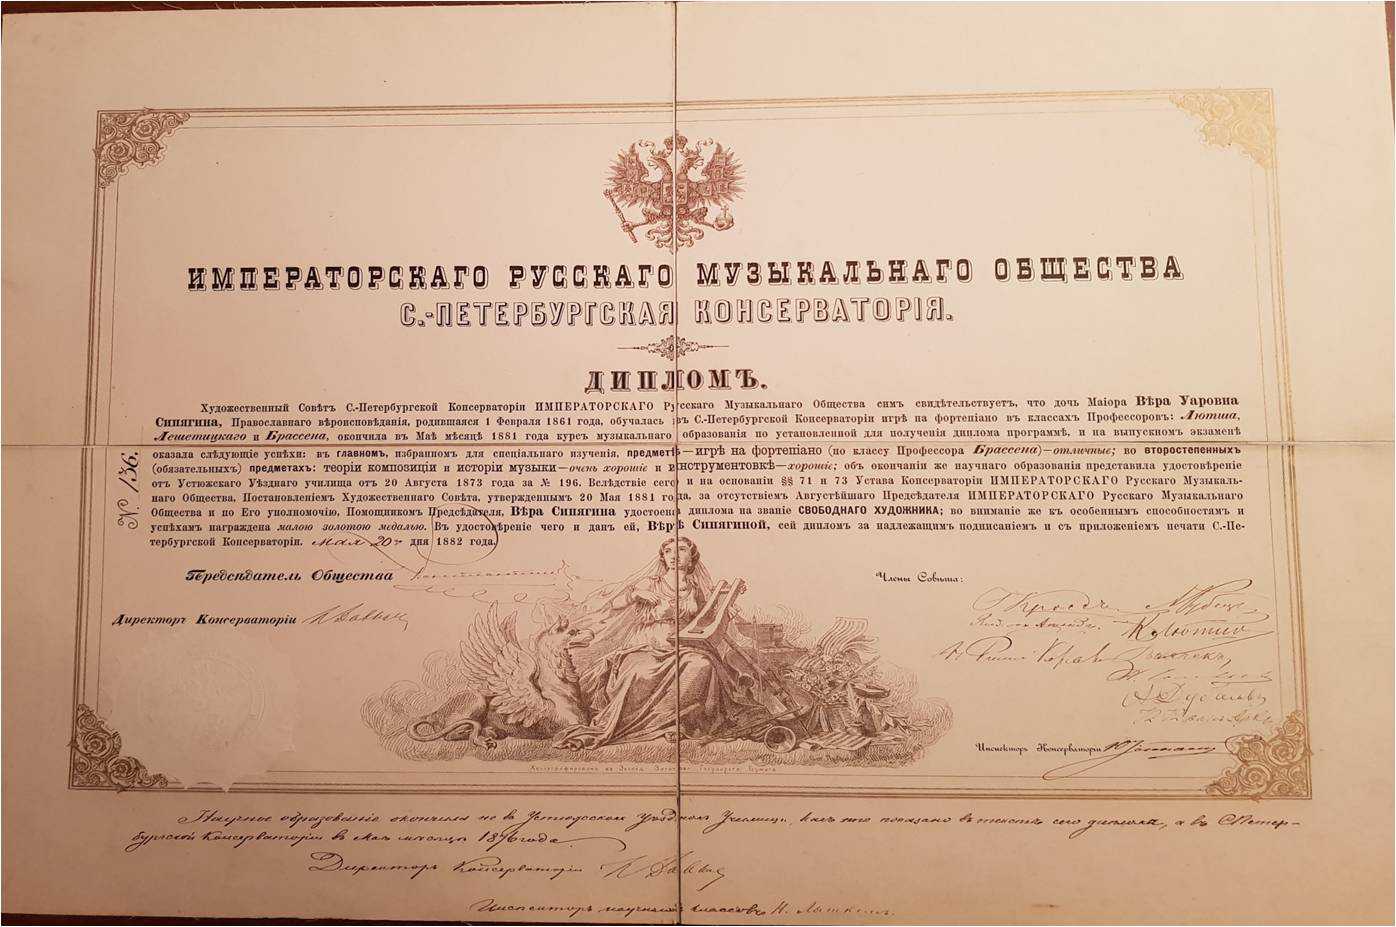 ИМПЕРАТОРСКАГО РУССКАГО МУЗЫКАЛЬНАГО ОБЩЕСТВА
С.-ПЕТЕРБУРГСКАЯ КОНСЕРВАТОРІЯ.
ДИПЛОМЪ.
Художественный Совѣтъ С.-Петербургской Консерваторіи ИМПЕРАТОРСКАГО Русскаго Музыкальнаго Общества симъ свидѣтельствуетъ, что дочь Маіора Вѣра Уаровна
Сипягина, Православнаго вѣроисповѣданія, родившаяся 1 Февраля 1861 года, обучалась въ С.-Петербургской Консерваторіи игрѣ на фортепіано въ классахъ Профессоровъ: Лютша,
Лешетицкаго и Брассена, окончила въ Маѣ мѣсяцѣ 1881 года курсъ музыкальнаго образованія по установленной для полученія диплома программѣ, и на выпускномъ экзаменѣ
оказала слѣдующіе успѣхи: въ главномъ, избранномъ для спеціальнаго изученія, предметѣ—игрѣ на фортепіано (по классу Профессора Брассена)—отличные; во второстепенныхъ
(обязательныхъ) предметахъ: теоріи композиціи и исторіи музыки—очень хорошіе и инструментовкѣ—хорошіе; объ окончаніи же научнаго образованія представила удостовѣреніе
отъ Устюжскаго Уѣзднаго училища отъ 20 Августа 1873 года за № 196. Вслѣдствіе сего и на основаніи §§ 71 и 73 Устава Консерваторіи ИМПЕРАТОРСКАГО Русскаго Музыкаль-
наго Общества, Постановленіемъ Художественнаго Совѣта, утвержденнымъ 20 Мая 1881 года, за отсутствіемъ Августѣйшаго Предсѣдателя ИМПЕРАТОРСКАГО Русскаго Музыкальнаго
Общества и по Его уполномочію, Помощникомъ Предсѣдателя, Вѣра Сипягина удостоена диплома на званіе СВОБОДНАГО ХУДОЖНИКА; во вниманіе же къ особеннымъ способностямъ и
успѣхамъ награждена малою золотою медалью. Въ удостовѣреніе чего и данъ ей, Вѣрѣ Сипягиной, сей дипломъ за надлежащимъ подписаніемъ и съ приложеніемъ печати С.-Пе-
тербургской Консерваторіи. мая 20 дня 1882 года.
№ 136.
Предсѣдатель Общества Константинъ
Члены Совѣта:
Директоръ Консерваторіи К Давыд
К Лютшъ
Инспекторъ Консерваторіи
Научное образованіе окончила не въ Устюжскомъ Уѣздномъ Училищѣ, какъ это показано въ текстѣ сего диплома, а въ С.Петер-
бургской Консерваторіи въ Маѣ мѣсяцѣ 1876 года.
Директоръ Консерваторіи К Давыд
Инспекторъ научныхъ классовъ